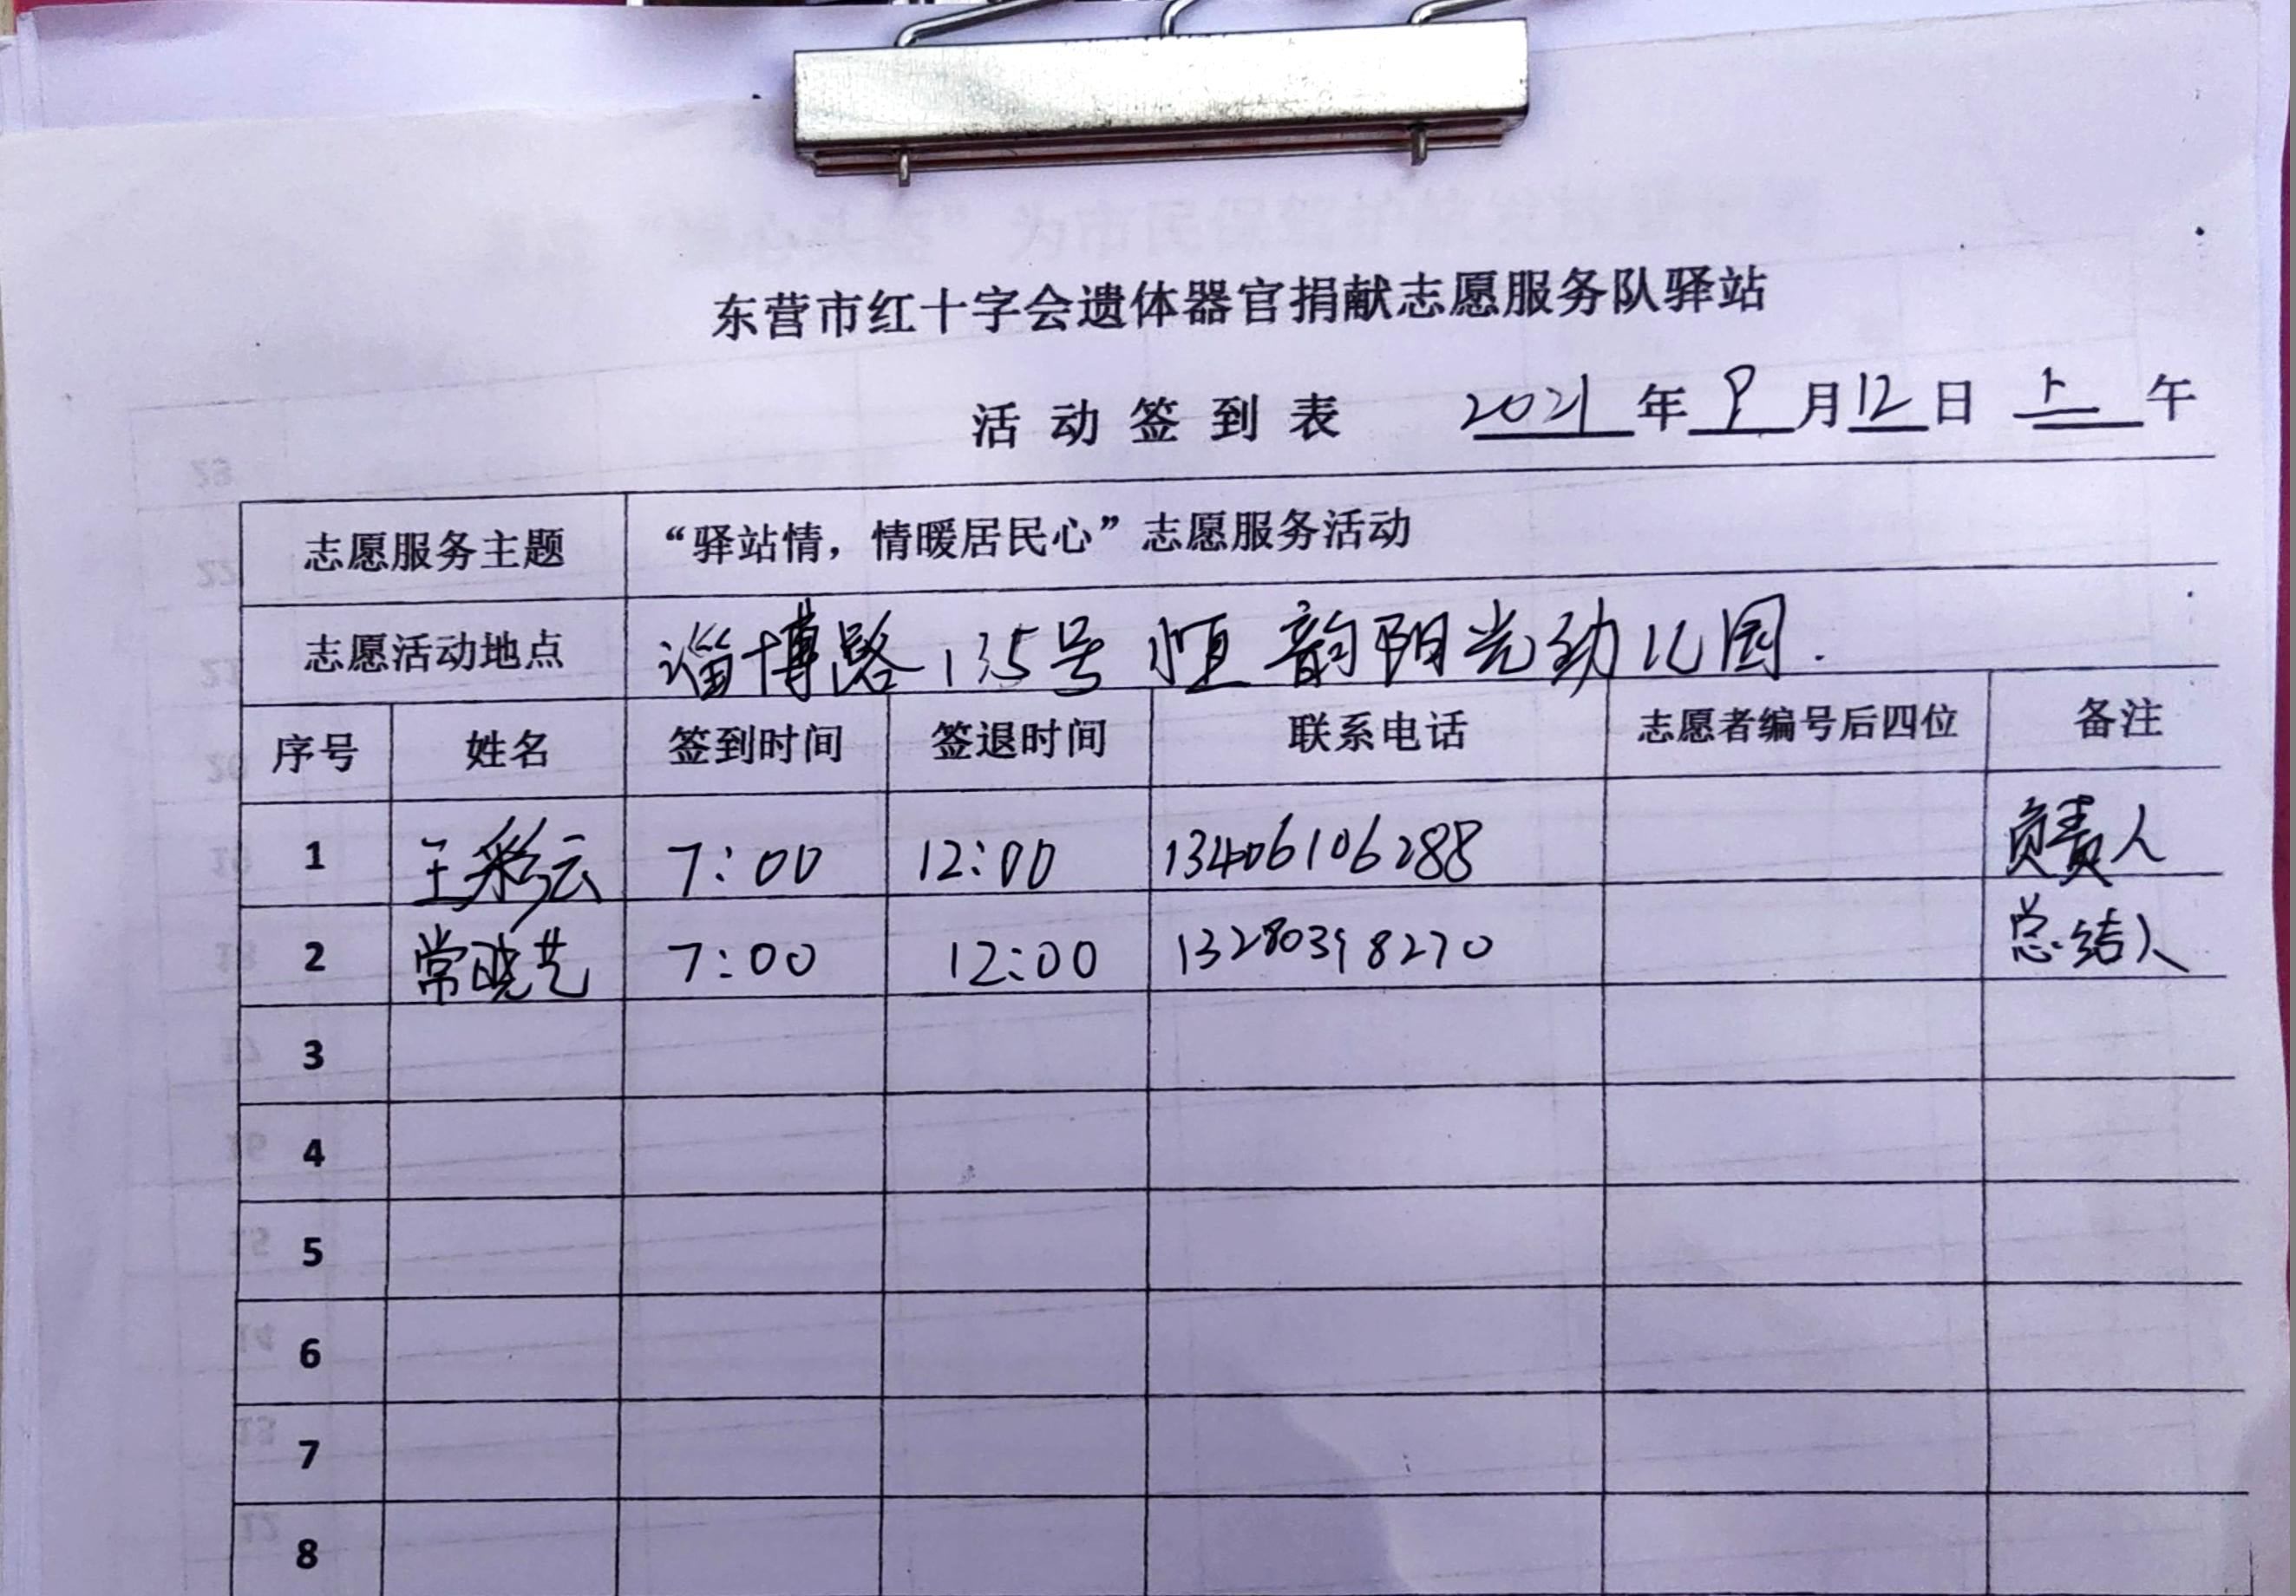 东营市红十字会遗体器官捐献志愿服务队驿站
活动签到表 2021年9月12日 上午
志愿服务主题 “驿站情，情暖居民心”志愿服务活动
志愿活动地点 淄博路135号 恒韵阳光幼儿园.
序号 姓名 签到时间 签退时间 联系电话 志愿者编号后四位 备注
1 王彩云 7:00 12:00 13406106288 负责人
2 常晓芝 7:00 12:00 13280398270 总结人
3
4
5
6
7
8